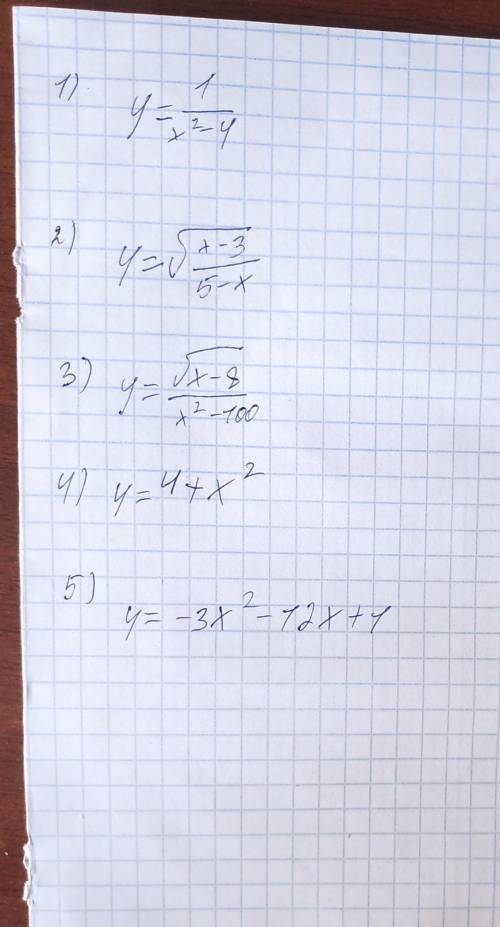 1) y = 1/(x² - 4)
2) y = √((x - 3)/(5 - x))
3) y = √(x - 8)/(x² - 100)
4) y = 4 + x²
5) y = -3x² - 12x + 1